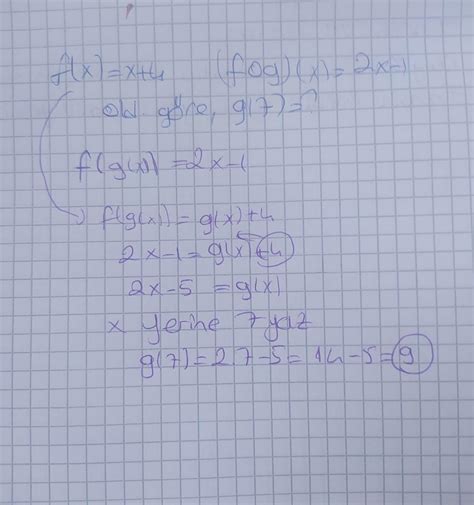 f(x)=x+4 (fog)(x)=2x-1
old göre, g(7)=?
f(g(x))=2x-1
f(g(x))=g(x)+4
2x-1=g(x)+4
2x-5=g(x)
x yerine 7 yaz
g(7)=2.7-5=14-5=9